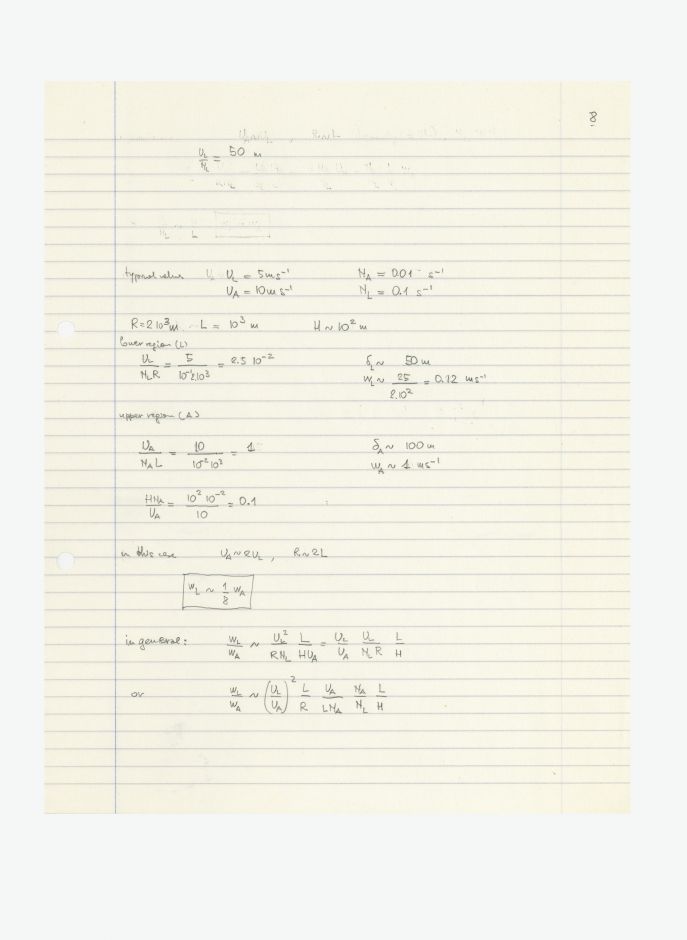 8
U_L/N_L = 50 m
typical values U_L U_L = 5 m s⁻¹ N_A = 0.01 s⁻¹
U_A = 10 m s⁻¹ N_L = 0.1 s⁻¹
R = 2 10³ m L = 10³ m H ~ 10² m
lower region (L)
U_L/(N_L R) = 5/(10⁻¹ 2 10³) = 2.5 10⁻² δ_L ~ 50 m
w_L ~ 25/(2.10²) = 0.12 m s⁻¹
upper region (A)
U_A/(N_A L) = 10/(10⁻² 10³) = 1 δ_A ~ 100 m
w_A ~ 1 m s⁻¹
H N_A/U_A = 10² 10⁻²/10 = 0.1
in this case U_A ~ 2U_L , R ~ 2L
w_L ~ 1/8 w_A
in general: w_L/w_A ~ U_L²/(R N_L) L/(H U_A) = U_L/U_A U_L/(N_L R) L/H
or w_L/w_A ~ (U_L/U_A)² L/R U_A/(L N_A) N_A/N_L L/H